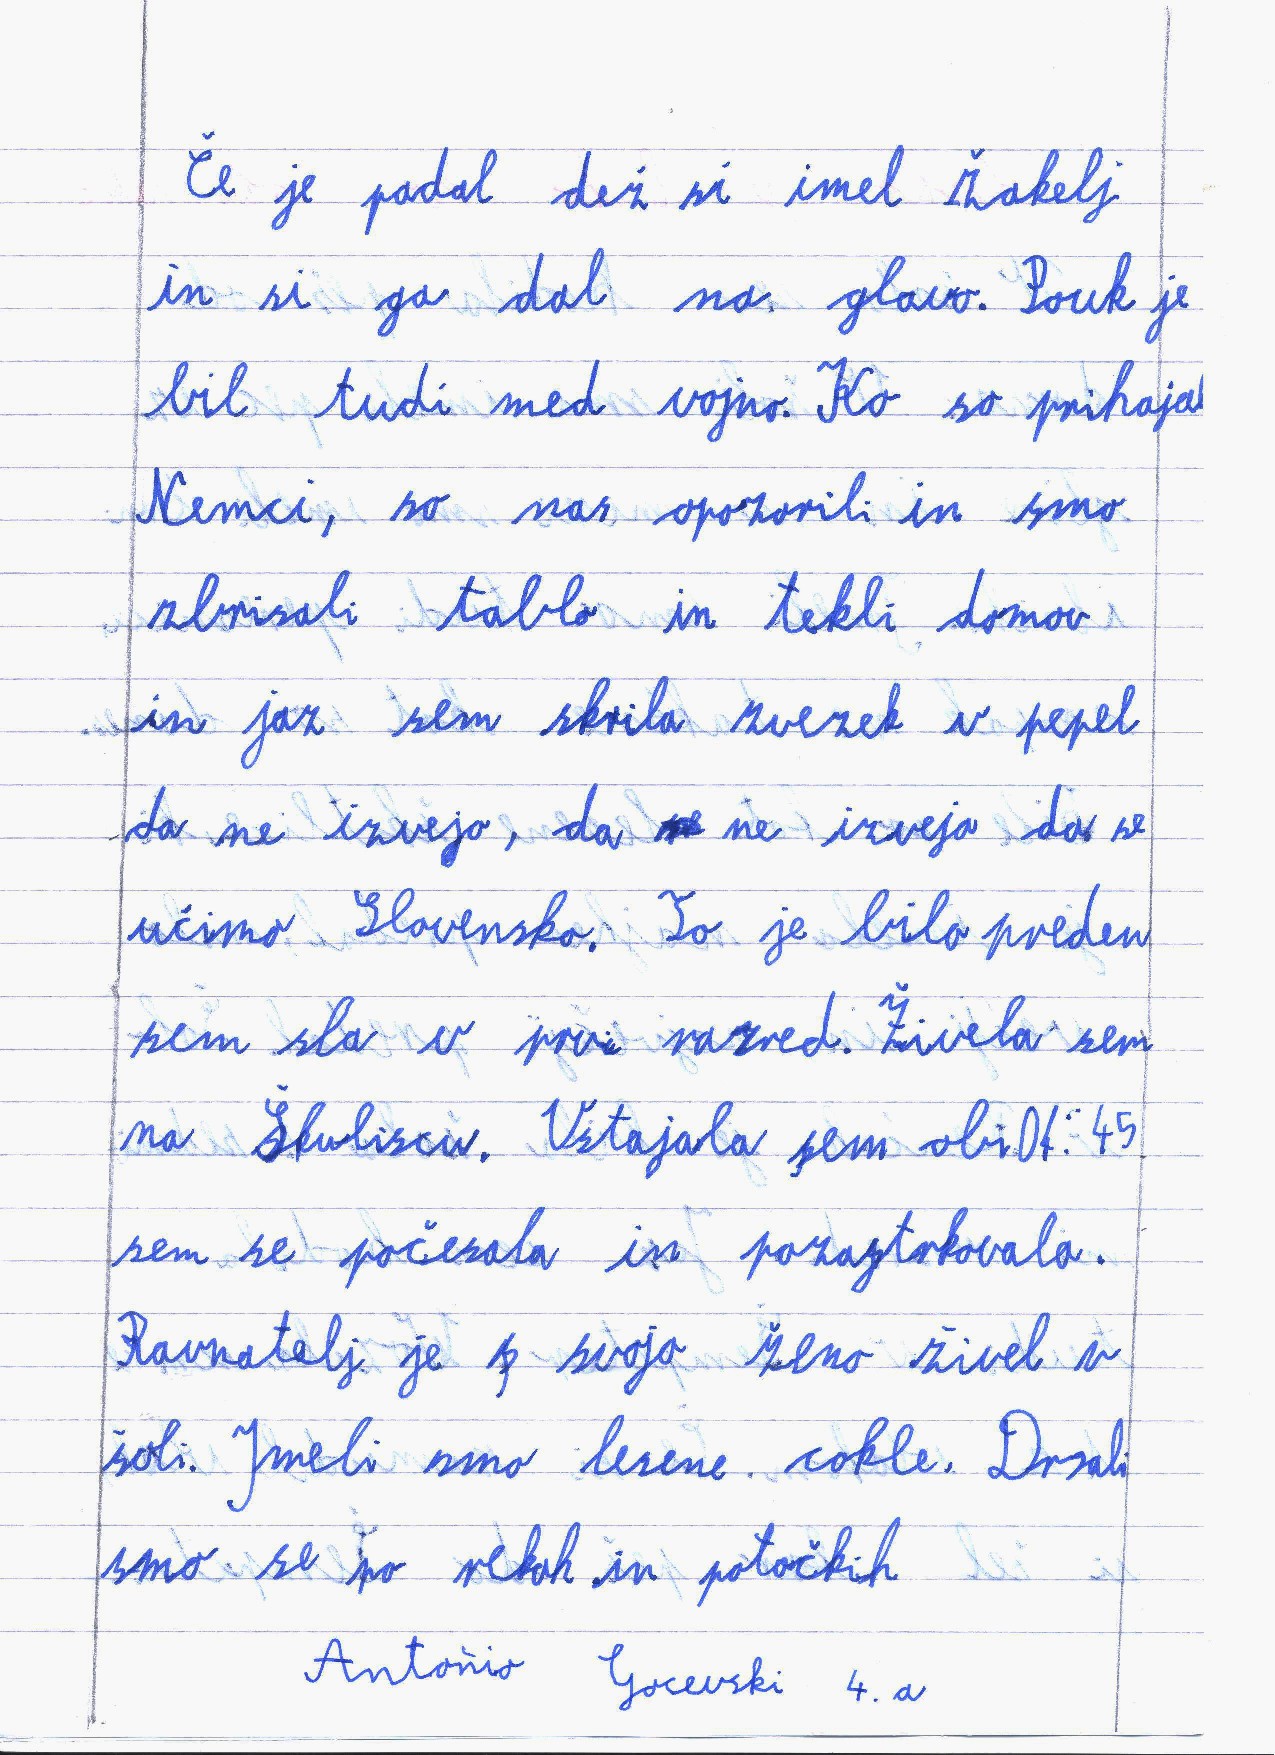 Če je padal dež si imel žakelj
in si ga dal na glavo. Pouk je
bil tudi med vojno. Ko so prihajal
Nemci, so nas opozorili in smo
zbrisali tablo in tekli domov
in jaz sem skrila zvezek v pepel
da ne izvejo, da ne izvejo da se
učimo Slovensko. To je bilo preden
sem sla v prvi razred. Živela sem
na Škuliscu. Vstajala sem obi 04:45
sem se počesala in pozajtrkovala.
Ravnatelj je s svojo ženo živel v
šoli. Imeli smo lesene cokle. Drsali
smo se po rekah in potočkih
Antonio Gocevski 4. a